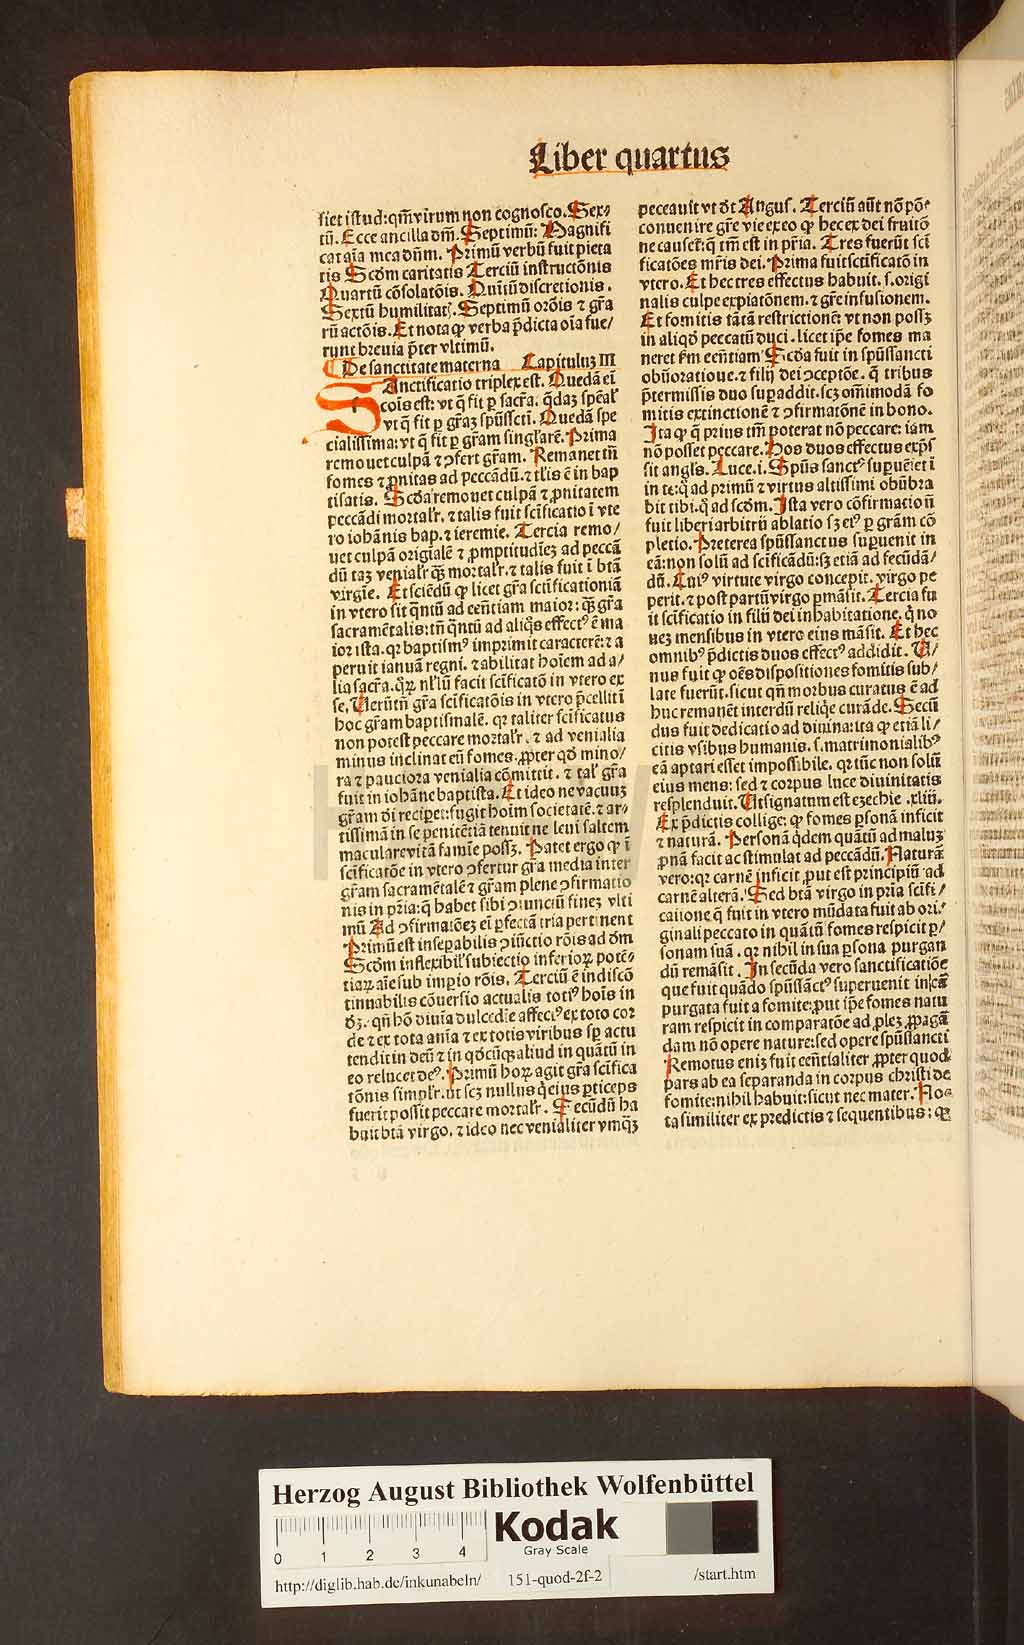 Liber quartus
fiet istud: qm̃ virum non cognosco. Sex⸗
tũ. Ecce ancilla dñi. Septimũ: Magnifi
cat aĩa mea dñm. Primũ verbũ fuit pieta
tis Scd̃m caritatis Terciũ instructõnis
Quartũ cõsolatõis. Quĩtũ discretionis.
Sextũ humilitat. Septimũ orõis ⁊ gr̃a
rũ actõis. Et nota ꝙ verba p̃dicta oĩa fue/
runt breuia p̃ter vltimũ.
De sanctitate materna Capituluꝫ III
SAnctificatio triplex est. Quedã eĩ
cõis est: vt q̃ fit ꝑ sacr̃a. q̃daꝫ sp̃eal̃
vt q̃ fit ꝑ gr̃aꝫ sp̃ussctĩ. Quedã spe
cialissima: vt q̃ fit ꝑ gr̃am singl̃arẽ. Prima
remouet culpã ⁊ ꝯfert gr̃am. Remanet tñ
fomes ⁊ ꝓnitas ad peccãdũ. ⁊ tl̃is ẽ in bap
tisatis. Scd̃a remouet culpã ⁊ ꝓnitatem
peccãdi mortalr̃. ⁊ talis fuit scĩficatio ĩ vte
ro iohãnis bap. ⁊ ieremie. Tercia remo/
uet culpã origĩalẽ ⁊ ꝓmptitudĩeꝫ ad peccã
dũ taꝫ venialr̃ qꝫ̃ mortalr̃. ⁊ talis fuit ĩ btã
virgĩe. Et sciẽdũ ꝙ licet gr̃a sctĩficationiã
in vtero sit q̃ntũ ad eeñtiam maior: qꝫ̃ gr̃a
sacramẽtalis: tñ q̃ntũ ad aliq̃s effectꝰ ẽ ma
ior ista. qꝛ baptismꝰ imprimit caracterẽ: ⁊ a
peruit ianuã regni. ⁊ abilitat hoĩem ad a/
lia sacr̃a. qꝛ̃ꝫ nl̃lũ facit scĩficatõ in vtero ex
se, Uerũtñ gr̃a scĩficatõis in vtero p̃cellit ĩ
hoc gr̃am baptismalẽ. qꝛ taliter scĩficatus
non potest peccare mortalr̃. ⁊ ad venialia
minus inclinat eũ fomes. ꝓpter qd̃ mino/
ra ⁊ pauciora venialia cõmittit. ⁊ tal̃ gr̃a
fuit in iohãne baptista. Et ideo ne vacuuꝫ
gr̃am d̃i recip̃et: fugit hoĩm societatẽ. ⁊ ar⸗
tissimã in se penitẽtiã tenuit ne leui saltem
maculare vitã famĩe possꝫ. Patet ergo ꝙ ĩ
scĩficatõe in vtero ꝯfertur gr̃a media inter
gr̃am sacramẽtalẽ ⁊ gr̃am plene ꝯfirmatio
nis in pr̃ia: q̃ habet sibi ꝯiunctũ fineꝫ vlti
mũ Ad ꝯfirmatõeꝫ eĩ ꝑfectã tria pertinent
Primũ est insep̃abilis ꝯiũctio rõis ad d̃m
Scd̃m inflexibil̃ subiectio inferioꝝ potẽ⸗
tiaꝝ aĩe sub imp̃io rõis. Terciũ ẽ indiscõ
tinnabilis cõuersio actualis totiꝰ hoĩs in
d̃ꝫ. qñ hõ diuĩa dulcedĩe affectꝰ ex toto cor
de ⁊ ex tota anĩa ⁊ ex totis viribus sꝑ actu
tendit in deũ ⁊ in qd̃cũqꝫ aliud in quãtũ in
eo relucet deꝰ. Primũ hoꝝ agit gr̃a scĩfica
tõnis simplr̃. ut scꝫ nullus q̃ eius ꝑticeps
fuerit possit peccare mortalr̃. Secũdũ ha
buit btã virgo. ⁊ ideo nec venialiter vmqꝫ̃
peccauit vt d̃t Angus. Terciũ aũt nõ põ⸗
conuenire gr̃e vie ex eo ꝙ hec ex dei fruitõ
ne causet̃: q̃ tm̃ est in pr̃ia. Tres fuerũt scĩ
ficatões mr̃is dei. Prima fuit sctĩficatõ in
vtero. Et hec tres effectus habuit. s. origi
nalis culpe expiatõnem. ⁊ gr̃e infusionem.
Et fomitis tãtã restrictionẽ vt non possꝫ
in aliqd̃ peccatũ duci. licet ip̃e fomes ma
neret s̃m eeñtiam Scd̃a fuit in sp̃ussancti
obũoratioue. ⁊ filij dei ꝯceptõe. q̃ tribus
p̃termissis duo suꝑaddit. scꝫ om̃imodã fo
mitis extinctionẽ ⁊ ꝯfirmatõnẽ in bono.
Ita ꝙ q̃ prius tm̃ poterat nõ peccare: iam
nõ posset peccare. Hos duos effectus exp̃s
sit angl̃s. Luce.i. Sp̃us sanctꝰ suꝑuẽiet ĩ
in te: q̃ ad primũ ⁊ virtus altissimi obũbra
bit tibi. q̃ ad scd̃m. Ista vero cõfirmatio ñ
fuit liberi arbitrij ablatio sꝫ eiꝰ ꝑ gr̃am cõ
pletio. Preterea sp̃ussanctus suꝑuenit in
eã: non solũ ad scĩficãdũ: sꝫ etiã ad fecũdã/
dũ. Cuiꝰ virtute virgo concepit. virgo pe
perit. ⁊ post partũ virgo ꝑmãsit. Tercia fu
it scĩficatio in filij dei inhabitatione. q̃ no
ueꝫ mensibus in vtero eius mãsit. Et hec
omnibꝰ p̃dictis duos effectꝰ addidit. U/
nus fuit ꝙ oẽs dispositiones fomitis sub/
late fuerũt. sicut qñ morbus curatus ẽ ad
huc remanẽt interdũ reliq̃e curãde. Secũ
dus fuit dedicatio ad diuina: ita ꝙ etiã li/
citis vsibus humanis. s. matrimonialibꝰ
eã aptari esset impossibile. qꝛ tũc non solũ
eius mens: sed ⁊ corpus luce diuinitatis
resplenduit. Ut signatum est ezechie .xliij.
Ex p̃dictis collige: ꝙ fomes ꝑsonã inficit
⁊ naturã. Personã q̃dem quãtũ ad maluꝫ
ꝓnã facit ac stimulat ad peccãdũ. Naturã
vero: qꝛ carnẽ inficit ꝓut est principiũ ad
carnẽ alterã. Sed btã virgo in pria scĩfi/
catione q̃ fuit in vtero mũdata fuit ab ori⸗
ginali peccato in quãtũ fomes respicit ꝑ/
sonam suã. qꝛ nihil in sua ꝑsona purgan
dũ remãsit. In secũda vero sanctificatiõe
que fuit quãdo sp̃ussãctꝰ superuenit in eã
purgata fuit a fomite: ꝓut ip̃e fomes natu
ram respicit in comparatõe ad ꝓleꝫ ꝓpagã
dam nõ opere nature: sed opere sp̃ussancti
Remotus eniꝫ fuit eeñtialiter ꝓpter quod
pars ab ea separanda in corpus christi de
fomite: nihil habuit: sicut nec mater. No⸗
ta similiter ex predictis ⁊ sequentibus: ꝙ
Herzog August Bibliothek Wolfenbüttel
Kodak
Gray Scale
0 1 2 3 4
http://diglib.hab.de/inkunabeln/ 151-quod-2f-2 /start.htm